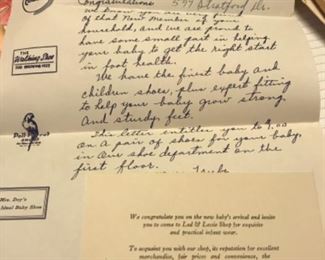 Congratulations 577 Stratford
of that New Member of your
household, and we are proud to
have some small part in helping
your baby to get the right start
in foot health.
We have the finest baby and
children shoes, plus expert fitting
to help your baby grow strong
and sturdy feet.
This letter entitles you to
on a pair of shoes for your baby,
in our shoe department on the
first floor.
The
Walking Shoe
Poll Parrot
Mrs. Day's
Ideal Baby Shoe
We congratulate you on the new baby's arrival and invite
you to come to Lad & Lassie Shop for exquisite
and practical infant wear.
To acquaint you with our shop, its reputation for excellent
merchandise, fair prices and convenience, the